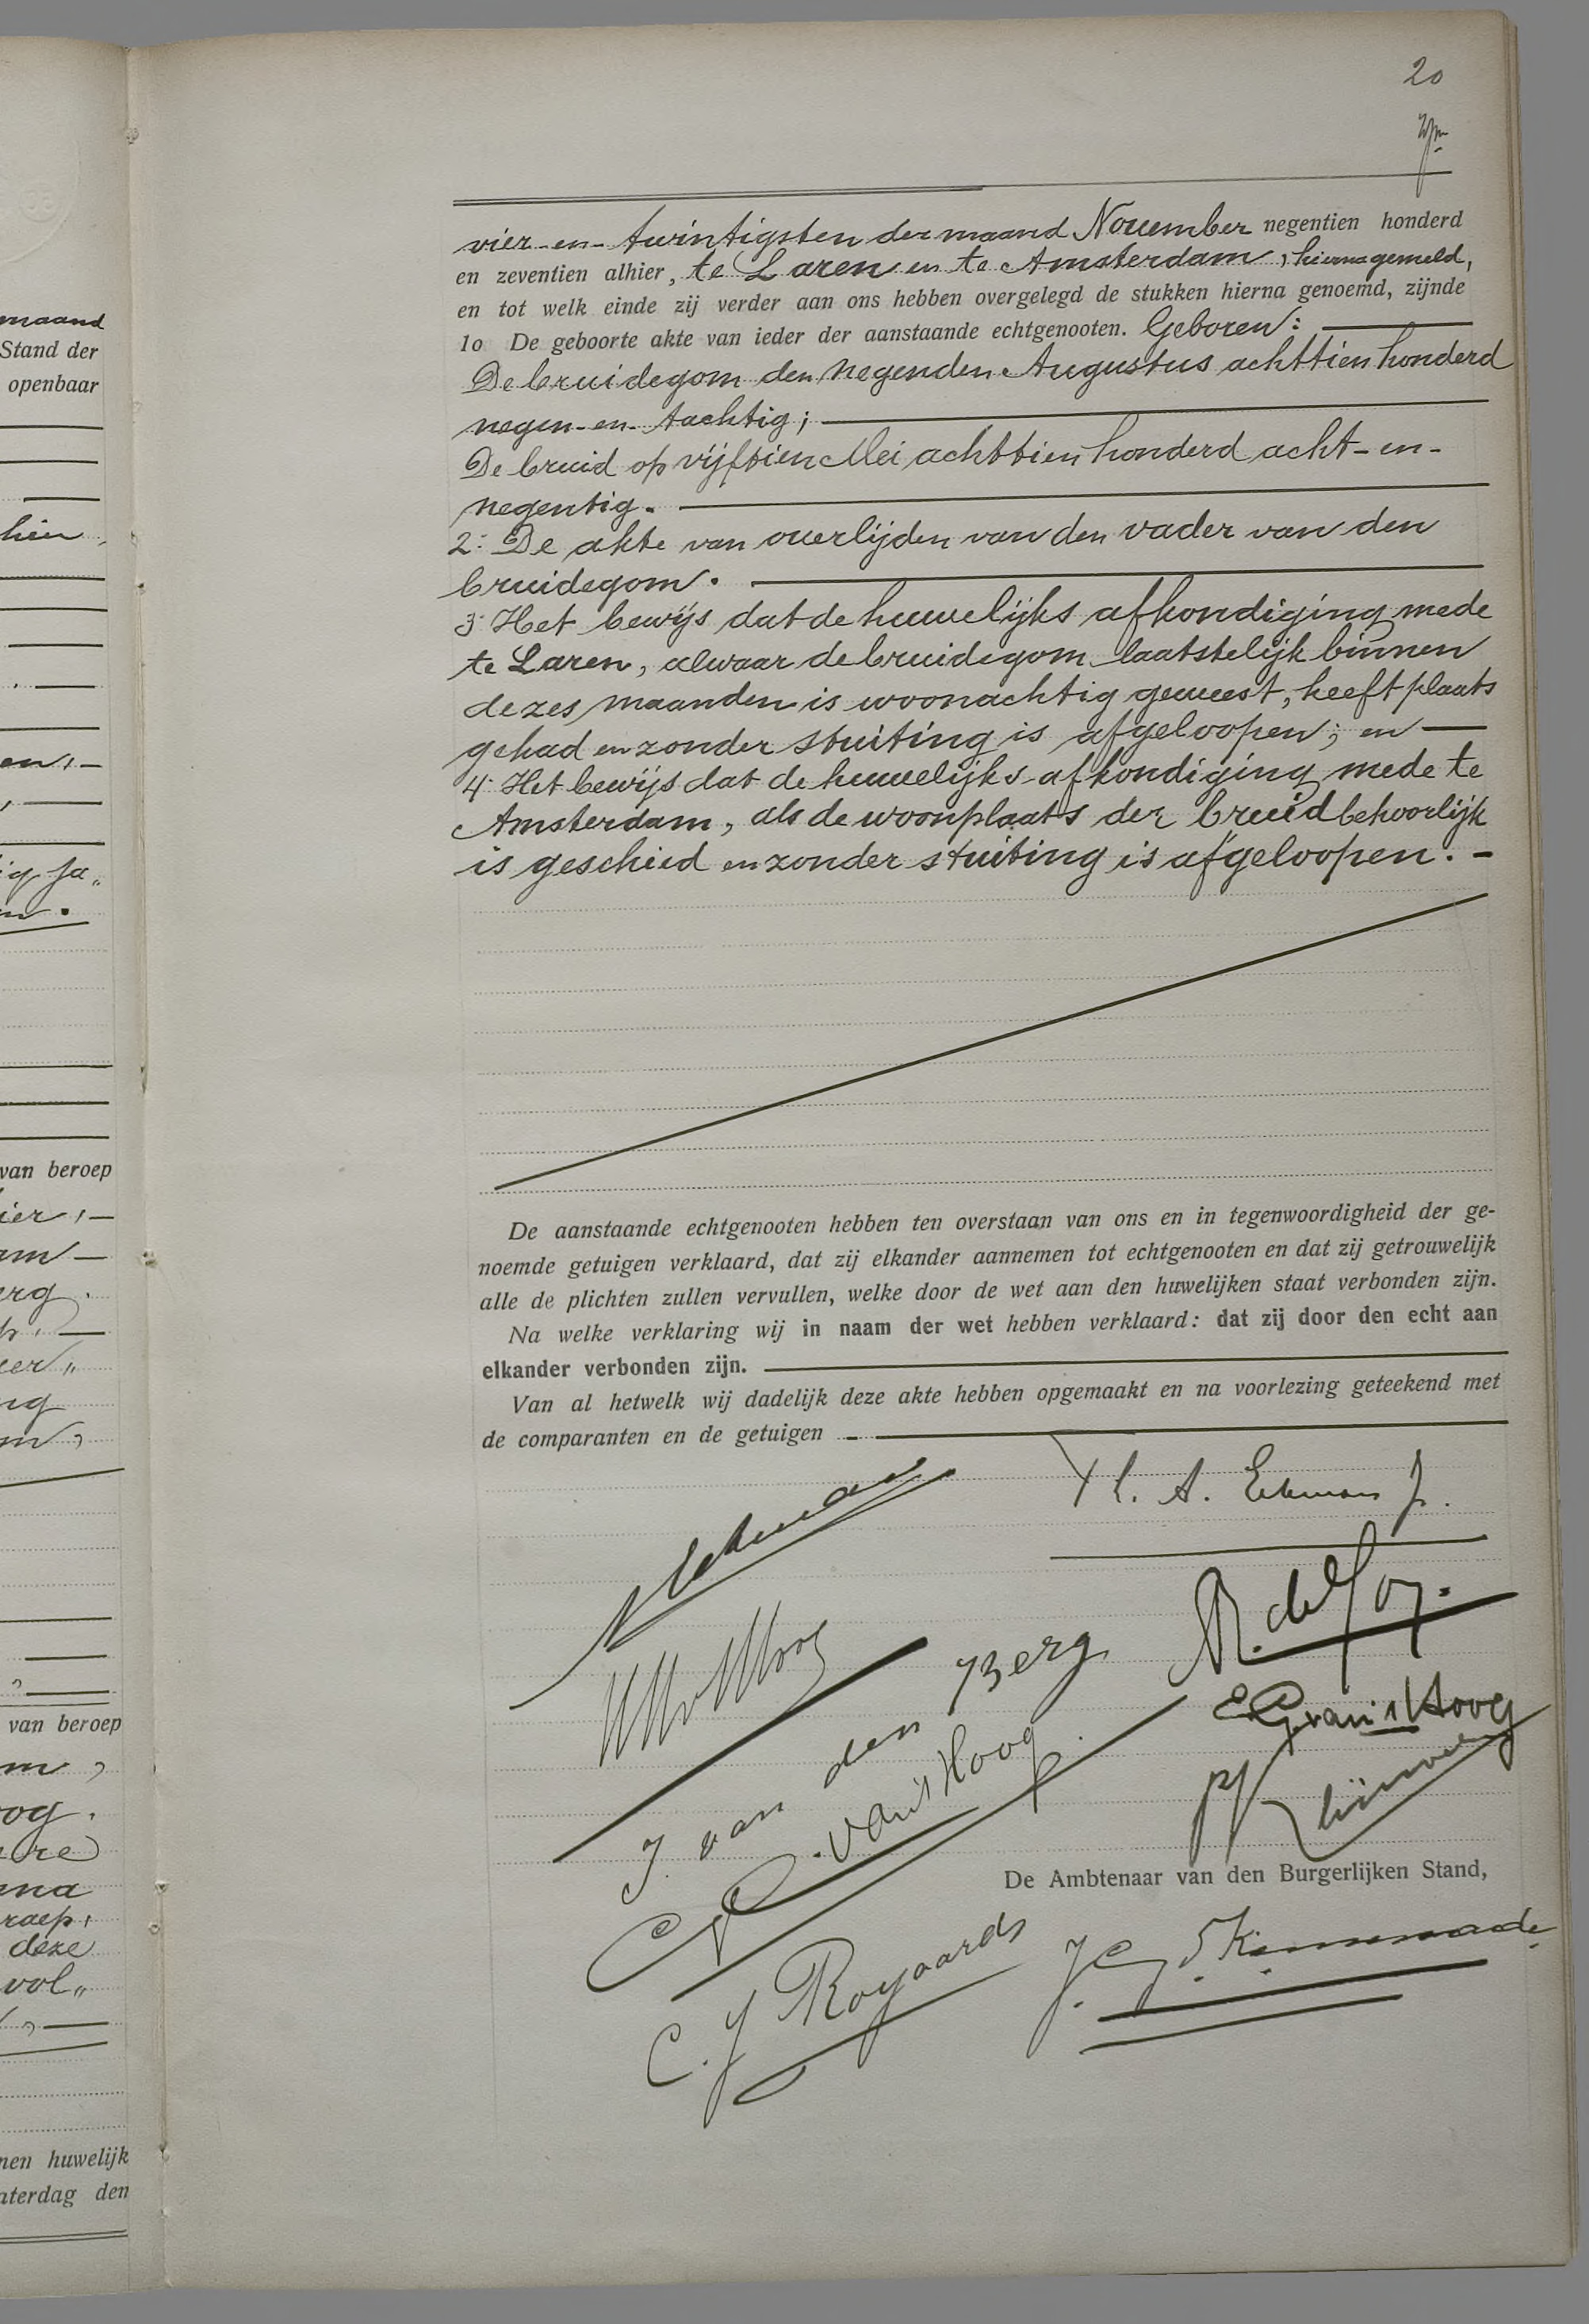 maand
Stand der
openbaar
van beroep
van beroep
deze
vol„
huwelijk
den
20
vier-en-twintigsten der maand November negentien honderd
en zeventien alhier, te Laren en te Amsterdam, hierna gemeld,
en tot welk einde zij verder aan ons hebben overgelegd de stukken hierna genoemd, zijnde
1o De geboorte akte van ieder der aanstaande echtgenooten. Geboren:
De bruidegom den negenden Augustus achttien honderd
negen-en-tachtig;
De bruid op vijftien Mei achttien honderd acht-en-
negentig.
2: De akte van overlijden van den vader van den
bruidegom.
3: Het bewijs dat de huwelijks afkondiging mede
te Laren, alwaar de bruidegom laatstelijk binnen
de zes maanden is woonachtig geweest, heeft plaats
gehad en zonder stuiting is afgeloopen; en
4: Het bewijs dat de huwelijks-afkondiging mede te
Amsterdam, als de woonplaats der bruid behoorlijk
is geschied en zonder stuiting is afgeloopen.
De aanstaande echtgenooten hebben ten overstaan van ons en in tegenwoordigheid der ge-
noemde getuigen verklaard, dat zij elkander aannemen tot echtgenooten en dat zij getrouwelijk
alle de plichten zullen vervullen, welke door de wet aan den huwelijken staat verbonden zijn.
Na welke verklaring wij in naam der wet hebben verklaard: dat zij door den echt aan
elkander verbonden zijn.
Van al hetwelk wij dadelijk deze akte hebben opgemaakt en na voorlezing geteekend met
de comparanten en de getuigen
J. van den Berg
van 't Hoog
van 't Hoog
De Ambtenaar van den Burgerlijken Stand,
C. J. Royaards